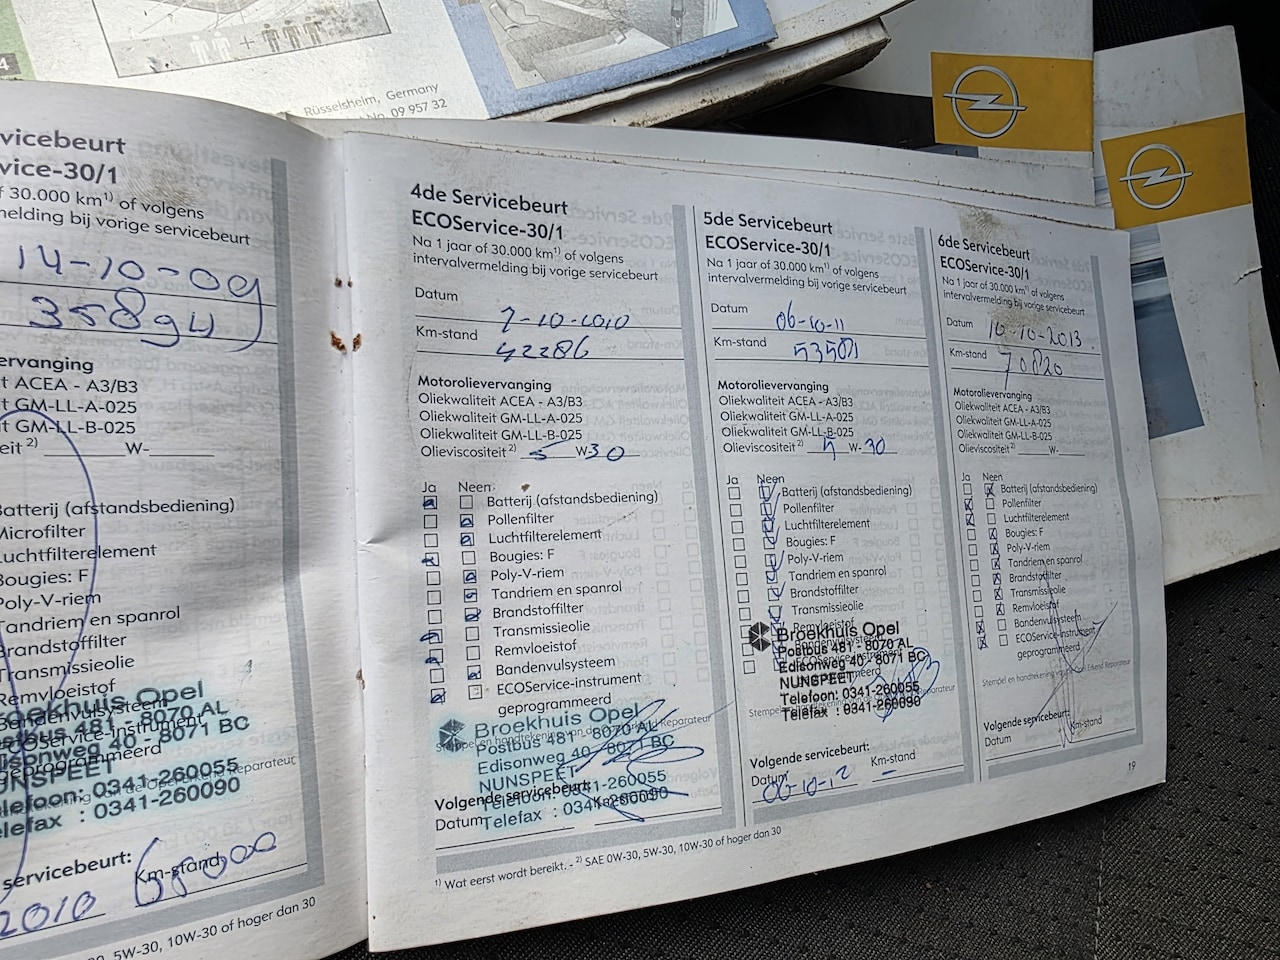 Rüsselsheim, Germany
09 957 32
vicebeurt
vice-30/1
f 30.000 km¹⁾ of volgens
melding bij vorige servicebeurt
14-10-09
35894
ervanging
t ACEA - A3/B3
t GM-LL-A-025
t GM-LL-B-025
eit ²⁾ W-
Batterij (afstandsbediening)
Microfilter
Luchtfilterelement
Bougies: F
Poly-V-riem
Tandriem en spanrol
Brandstoffilter
Transmissieolie
Remvloeistof
Bandenvulsysteem
geprogrammeerd
oekhuis Opel
ostbus 481 - 8070 AL
disonweg 40 - 8071 BC
UNSPEET
elefoon: 0341-260055
elefax : 0341-260090
servicebeurt:
Km-stand
2010
, 5W-30, 10W-30 of hoger dan 30
4de Servicebeurt
ECOService-30/1
Na 1 jaar of 30.000 km¹⁾ of volgens
intervalvermelding bij vorige servicebeurt
Datum 7-10-2010
Km-stand 42286
Motorolievervanging
Oliekwaliteit ACEA - A3/B3
Oliekwaliteit GM-LL-A-025
Oliekwaliteit GM-LL-B-025
Olieviscositeit ²⁾ 5 W-30
Ja Neen
Batterij (afstandsbediening)
Pollenfilter
Luchtfilterelement
Bougies: F
Poly-V-riem
Tandriem en spanrol
Brandstoffilter
Transmissieolie
Remvloeistof
Bandenvulsysteem
ECOService-instrument
geprogrammeerd
Broekhuis Opel
Postbus 481 - 8070 AL
Edisonweg 40 - 8071 BC
NUNSPEET
Telefoon: 0341-260055
Telefax : 0341-260090
Volgende servicebeurt:
Datum Km-stand
¹⁾ Wat eerst wordt bereikt. - ²⁾ SAE 0W-30, 5W-30, 10W-30 of hoger dan 30
5de Servicebeurt
ECOService-30/1
Na 1 jaar of 30.000 km¹⁾ of volgens
intervalvermelding bij vorige servicebeurt
Datum 06-10-11
Km-stand
Motorolievervanging
Oliekwaliteit ACEA - A3/B3
Oliekwaliteit GM-LL-A-025
Oliekwaliteit GM-LL-B-025
Olieviscositeit ²⁾ 5 W-30
Ja Neen
Batterij (afstandsbediening)
Pollenfilter
Luchtfilterelement
Bougies: F
Poly-V-riem
Tandriem en spanrol
Brandstoffilter
Transmissieolie
Remvloeistof
Broekhuis Opel
Postbus 481 - 8070 AL
Edisonweg 40 - 8071 BC
NUNSPEET
Telefoon: 0341-260055
Telefax : 0341-260090
Volgende servicebeurt:
Datum Km-stand
06-10-12 -
6de Servicebeurt
ECOService-30/1
Na 1 jaar of 30.000 km¹⁾ of volgens
intervalvermelding bij vorige servicebeurt
Datum 10-10-2013
Km-stand 70820
Motorolievervanging
Oliekwaliteit ACEA - A3/B3
Oliekwaliteit GM-LL-A-025
Oliekwaliteit GM-LL-B-025
Olieviscositeit ²⁾ W-
Ja Neen
Batterij (afstandsbediening)
Pollenfilter
Luchtfilterelement
Bougies: F
Poly-V-riem
Tandriem en spanrol
Brandstoffilter
Transmissieolie
Remvloeistof
Bandenvulsysteem
ECOService-instrument
geprogrammeerd
Volgende servicebeurt:
Datum Km-stand
19